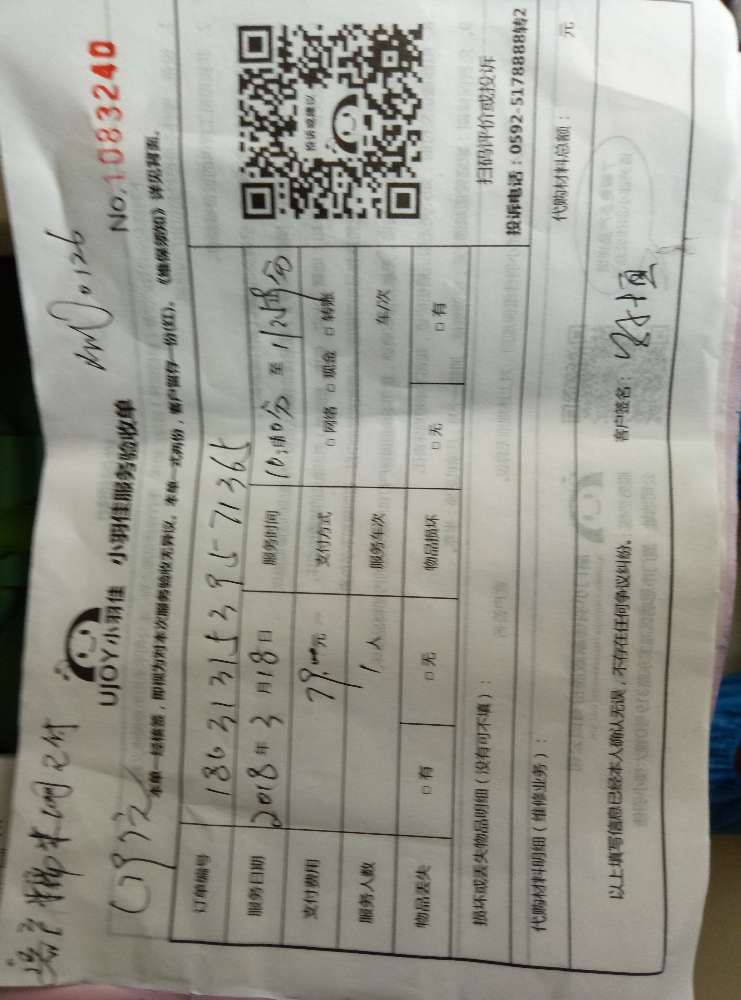 UJOY小羽佳 小羽佳服务验收单
No.1083240
本单一经核签,即视为对本次服务验收无异议。本单一式两份,客户留存一份(红)。《维保须知》详见背面。
订单编号 180313153957 1365
服务日期 2018年3月18日 服务时间 至
支付费用 79.00元 支付方式 □网络 □现金 □转账
服务人数 1人 服务车次 车/次
物品丢失 □有 □无 物品损坏 □无 □有
投诉或建议
扫码评价或投诉
投诉电话:0592-5178888转2
损坏或丢失物品明细(没有可不填):
代购材料明细(维修业务): 代购材料总额: 元
以上填写信息已经本人确认无误,不存在任何争议纠纷。 客户签名: